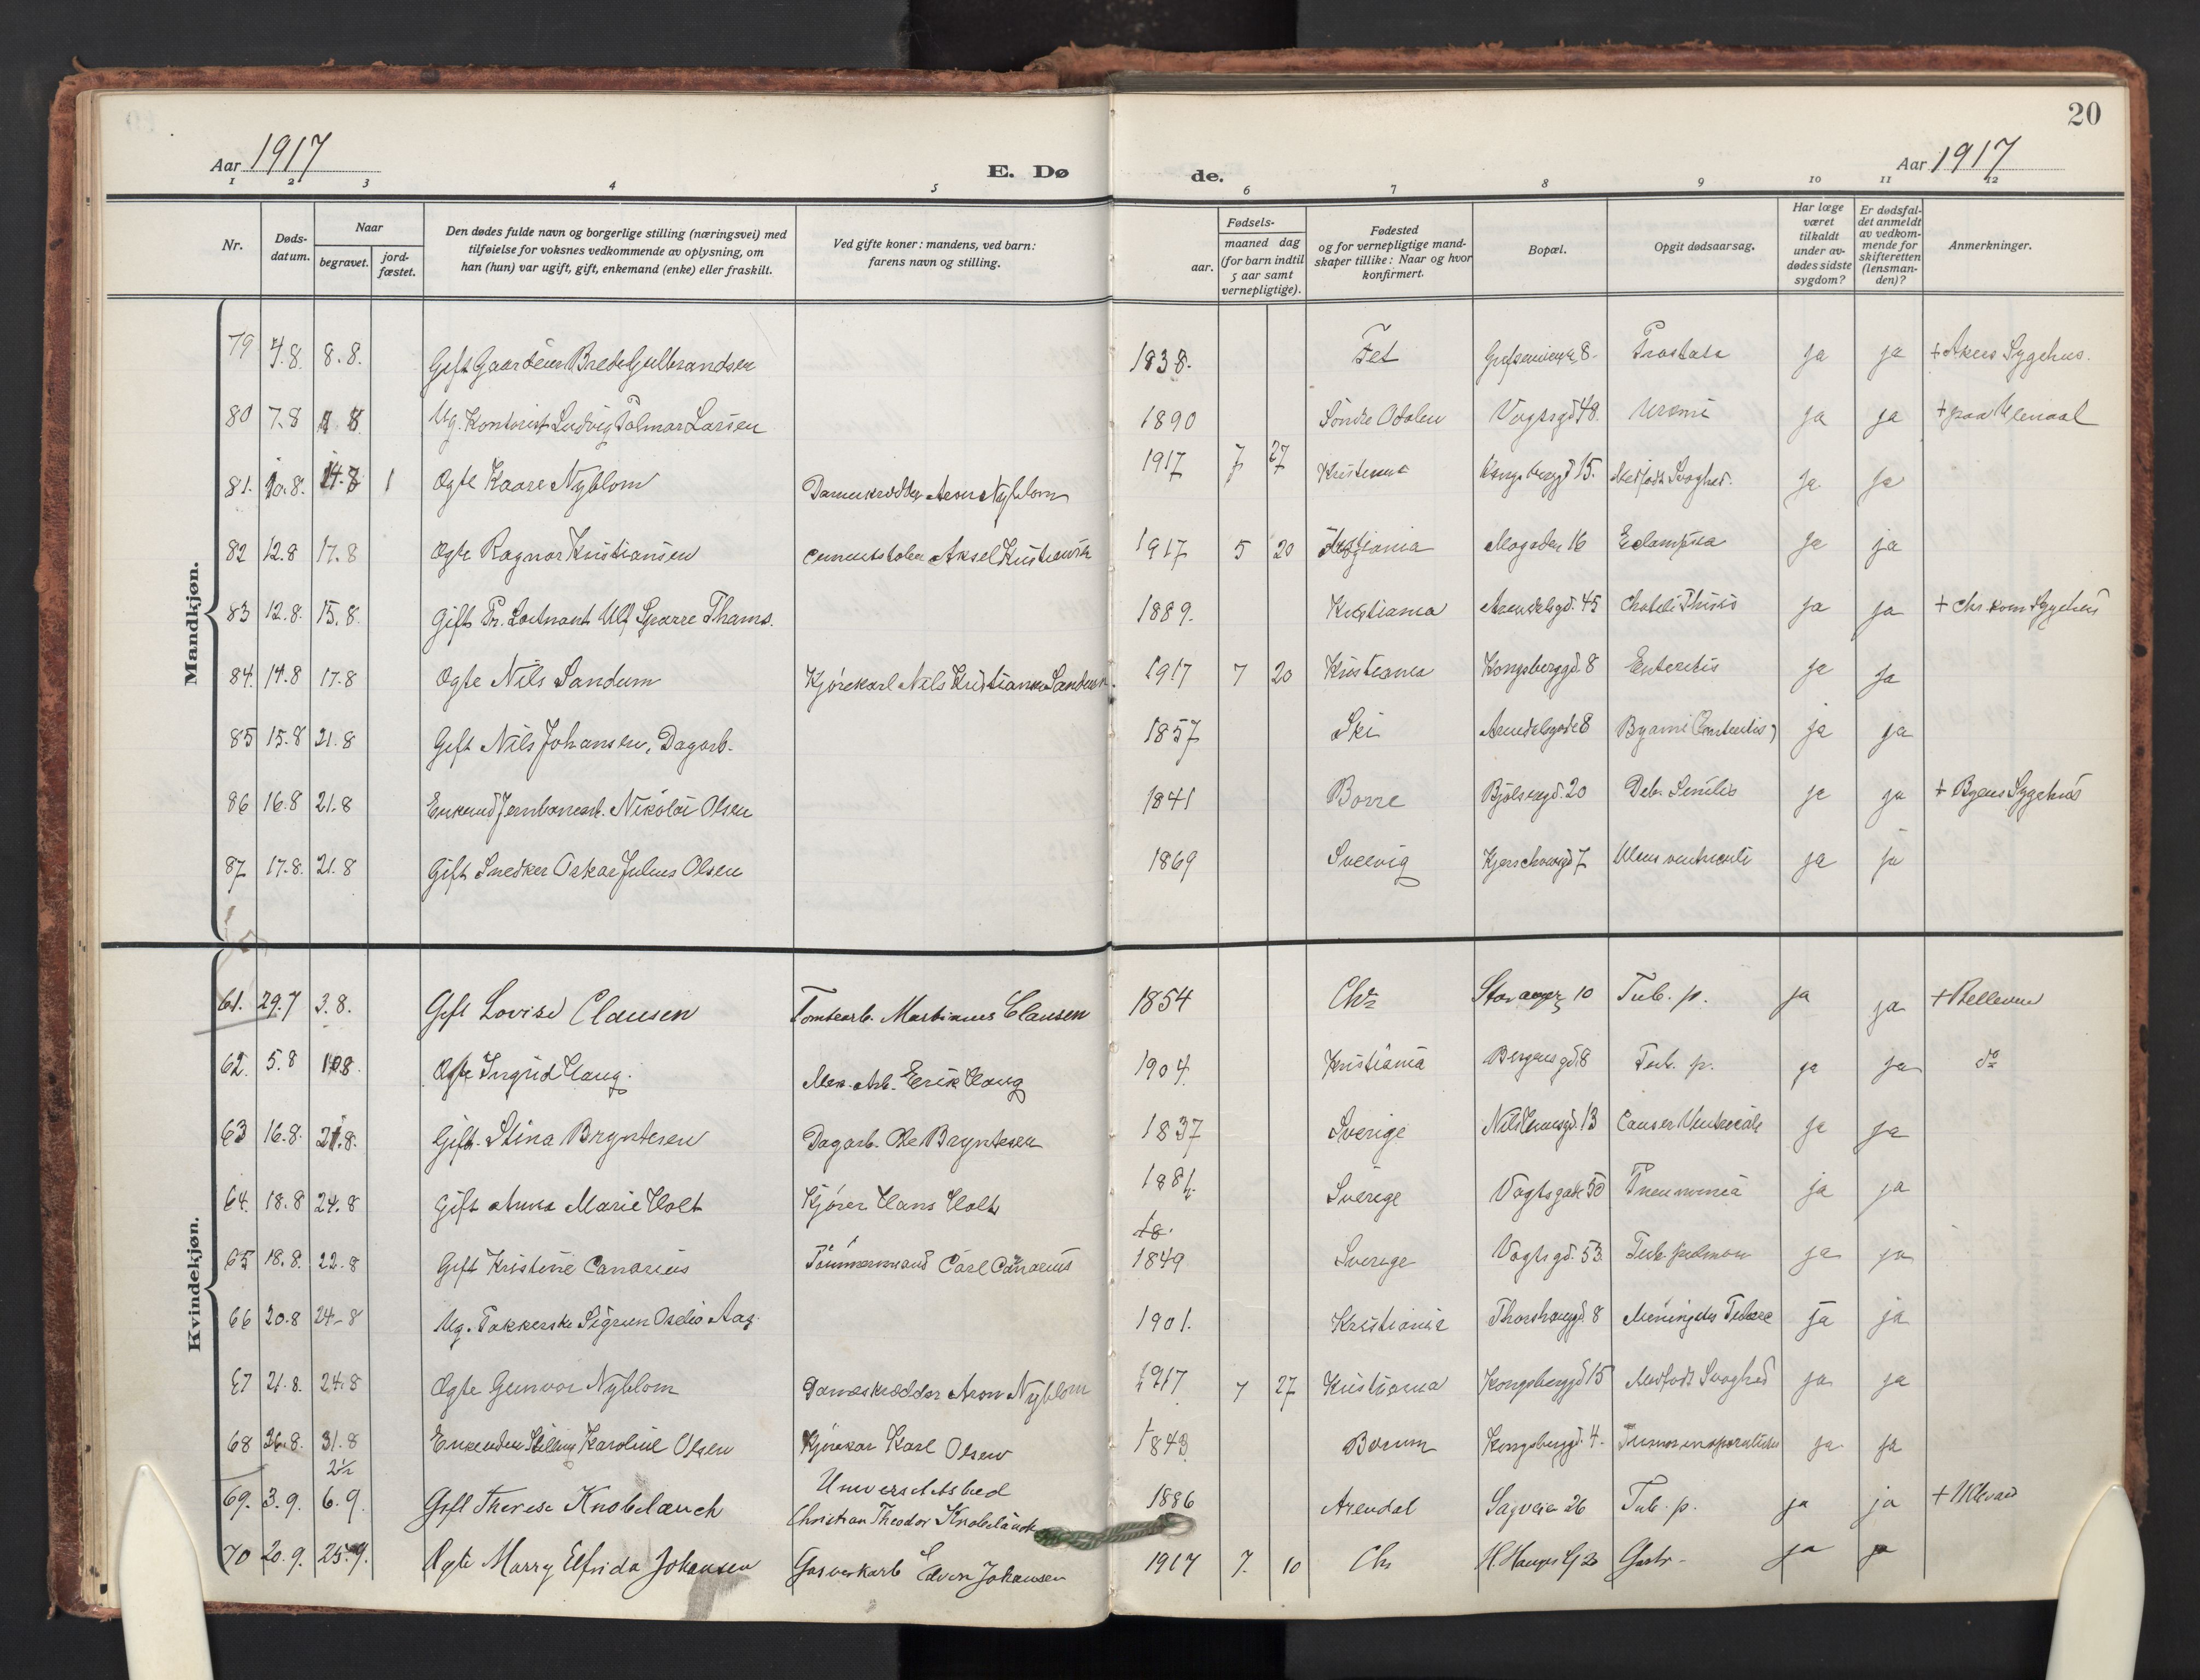 20
Aar 1917
E. Dø
de.
Aar 1917
1 2 3 4 5 6 7 8 9 10 11 12
Nr.
Døds-
datum.
Naar
begravet.
jord-
fæstet.
Den dødes fulde navn og borgerlige stilling (næringsvei) med
tilføielse for voksnes vedkommende av oplysning, om
han (hun) var ugift, gift, enkemand (enke) eller fraskilt.
Ved gifte koner: mandens, ved barn:
farens navn og stilling.
Fødsels-
aar.
maaned dag
(for barn indtil
5 aar samt
vernepligtige).
Fødested
og for vernepligtige mand-
skaper tillike: Naar og hvor
konfirmert.
Bopæl.
Opgit dødsaarsag.
Har læge
været
tilkaldt
under av-
dødes sidste
sygdom?
Er dødsfal-
det anmeldt
av vedkom-
mende for
skifteretten
(lensman-
den)?
Anmerkninger.
Mandkjøn.
79 4.8. 8.8. Gift Gaardeier Brede Gulbrandsen 1838. Fet 8. Prostata ja ja + Akers Sygehus.
80 7.8 8 Ug. Kontorist Ludvig Larsen 1890 Søndre Odalen Vogtsgd 48. Uremi ja ja + paa Ulevaal
81. 10.8. 14.8 1 Ægte Kaare Nyblom Dameskrædder Aron Nyblom 1917 7 27 Kristiania Kongsberggd 15. Medfødt Svaghed. ja ja
82 12.8 17.8 Ægte Ragnar Kristiansen Cementstøber Aksel Kristiansen 1917 5 20 Kristiania Mogaden 16 Eclampsia ja ja
83 12.8. 15.8. Gift Pr. Løitnant Ulf Sparre Thams. 1889. Kristiania Arendalsgd. 45 Phtisis ja ja + Chr. kom. Sygehus
84. 14.8 17.8 Ægte Nils Sandum Kjørekarl Nils Kristian Sandum. 1917 7 20 Kristiania Kongsberggd. 8 Enteritis ja ja
85 15.8 21.8 Gift Nils Johansen, Dagarb. 1857 Ski Arendalsgade 8 ja ja
86 16.8 21.8 Enkemd Jernbanearb. Nikolai Olsen 1841 Borre Bjølsengd. 20 Deb. Senilis ja ja + Byens Sygehus
87 17.8. 21.8 Gift Snedker Oskar Julius Olsen 1869 Svelvig Kjerschowsgd 7 Ulcus ventriculi ja ja
Kvindekjøn.
61. 29.7 3.8. Gift Lovise Clausen Tomtearb. Martinius Clausen 1854 Chr. Stavangergd 10 Tub. p. ja ja + Bellevue
62. 5.8 10.8. Ægte Ingrid Haug. Mek. Arb. Erik Haug 1904. Kristiania Bergensgd. 8 Tub. p. ja ja do
63 16.8. 21.8. Gift. Stina Bryntesen Dagarb. Ole Bryntesen 1837 Sverige 13 Cancer Ventriculi ja ja
64. 18.8 24.8 Gift Anna Marie Holt Kjører Hans Holt 1881. Sverige Vogtsgade 50 Pneumonia ja ja
18.
65 18.8. 22.8 Gift Kristine Canarius Tømmermand Carl Canarius 1849 Sverige Vogtsgd. 53 Tub. pulmon ja ja
66 20.8 24-8 Ug. Pakkerske Sigrun Aas. 1901. Kristiania Thorshauggd. 8 Meningites Tuberc ja ja
67 21.8. 24.8 Ægte Gunvor Nyblom Dameskrædder Aron Nyblom 1917 7 27 Kristiania Kongsberggd 15 Medfødt Svaghed ja ja
68 26.8. 31.8 Enke uden Stilling Karoline Olsen Kjørekar Karl Olsen 1843 Bærum Kongsberggd. 4. Tumor inoperabilis ja ja
69. 3.9. 6.9. Gift Therese Knobelauch Universitetsbud
Christian Theodor Knobelauch 1886 Arendal Sagveien 26 Tub. p. ja ja + Ullevaal
70 20.9. 25.9. Ægte Marry Elfrida Johansen Gasverkarb Edvin Johansen 1917 7. 10 Chr H. Hauges G 20 Gastr- ja ja